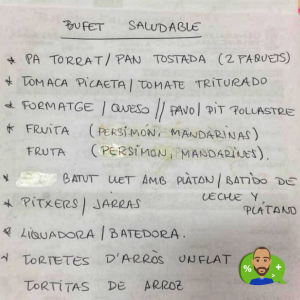 BUFET SALUDABLE
* PA TORRAT / PAN TOSTADA (2 PAQUETS)
* TOMACA PICAETA / TOMATE TRITURADO
* FORMATGE / QUESO // PAVO / PIT POLLASTRE
* FRUITA (PERSIMON, MANDARINAS)
FRUTA (PERSIMON, MANDARINES).
* BATUT LLET AMB PLÀTAN / BATIDO DE
LECHE Y
PLÁTANO
* PITXERS / JARRAS
* LIQUADORA / BATEDORA.
* TORTETES D'ARRÒS UNFLAT
TORTITAS DE ARROZ
%